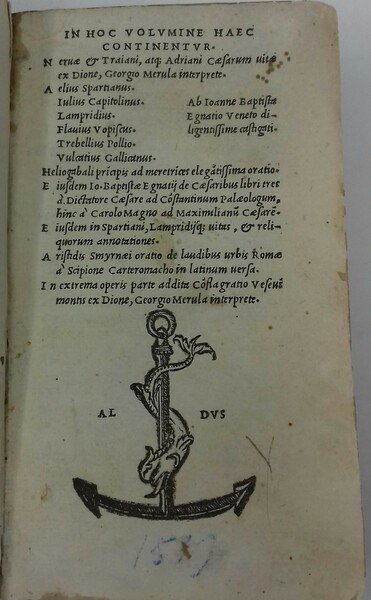 IN HOC VOLVMINE HAEC
CONTINENTVR.
N eruæ & Traiani, atq; Adriani Cæsarum uitæ
ex Dione, Georgio Merula interprete.
A elius Spartianus.
Iulius Capitolinus. Ab Ioanne Baptista
Lampridius. Egnatio Veneto di-
Flauius Vopiscus. ligentissime castigati.
Trebellius Pollio.
Vulcatius Gallicanus.
Heliogabali priapis ad meretrices elegātissima oratio.
E iusdem Io. Baptistæ Egnatij de Cæsaribus libri tres
à Dictatore Cæsare ad Cōstantinum Palæologum,
hinc à Carolo Magno ad Maximilianū Cæsarē.
E iusdem in Spartiani, Lampridijq; uitas, & reli-
quorum annotationes.
A ristidis Smyrnæi oratio de laudibus urbis Romæ
à Scipione Carteromacho in latinum uersa.
I n extrema operis parte addita Cōflagratio Veseui
montis ex Dione, Georgio Merula interprete.
AL DVS